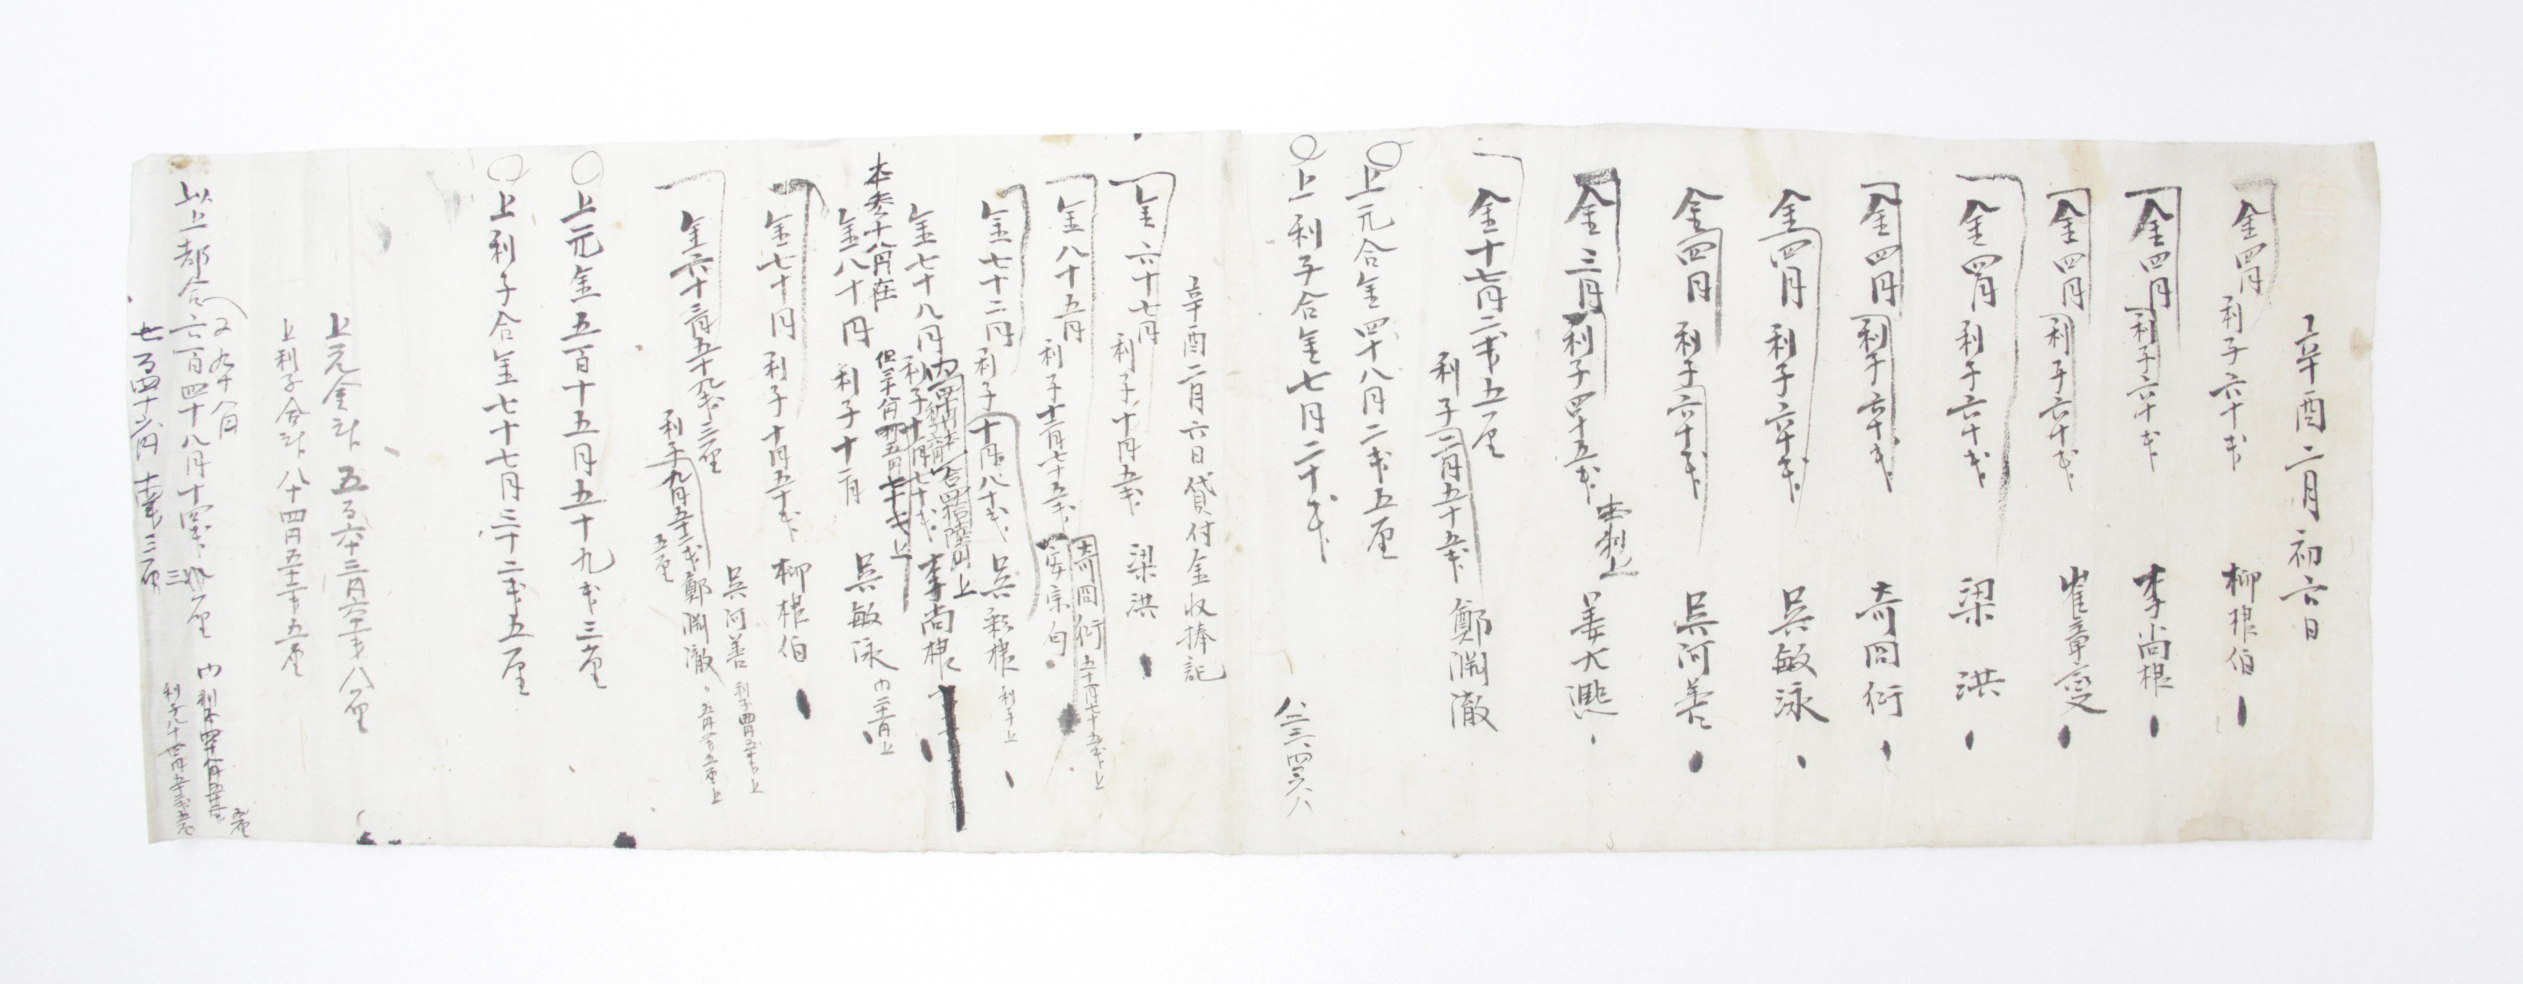 辛酉二月初六日
金四円 利子六十戋 柳根伯
金四円 利子六十戋 李尚根
金四円 利子六十戋 崔章燮
金四円 利子六十戋 梁洪
金四円 利子六十戋 奇冏衍
金四円 利子六十戋 吳敏泳
金四円 利子六十戋 吳河善
金三円 利子四十五戋 姜大凞
本利上
金十七円二戋五厘
利子二円五十五戋 鄭淵澈
上元合金四十八円二戋五厘
上利子合金七円二十戋
辛酉二月六日貸付金收捧記
金六十七円 利子十円五戋 梁洪
金八十五円 利子十二円七十五戋 奇冏衍
安宗旬
金七十二円 利子十円八十戋 吳彩根 利子上
金七十八円 利子十一円七十戋 李尚根
本叁十八円在
金八十円 利子十二円 吳敏泳
金七十円 利子十円五十戋 柳根伯
吳河善
金六十三円五十九戋三厘
利子九円五十三戋五厘 鄭淵澈
上元金五百十五円五十九戋三厘
上利子合金七十七円三十二戋五厘
上元金合 五百六十三円六十一戋八厘
上利子合 八十四円五十二戋五厘
又九十八円
以上都合六百四十八円十四戋三厘
七百四十六円十四戋三厘
利子八十四円五十二戋五厘